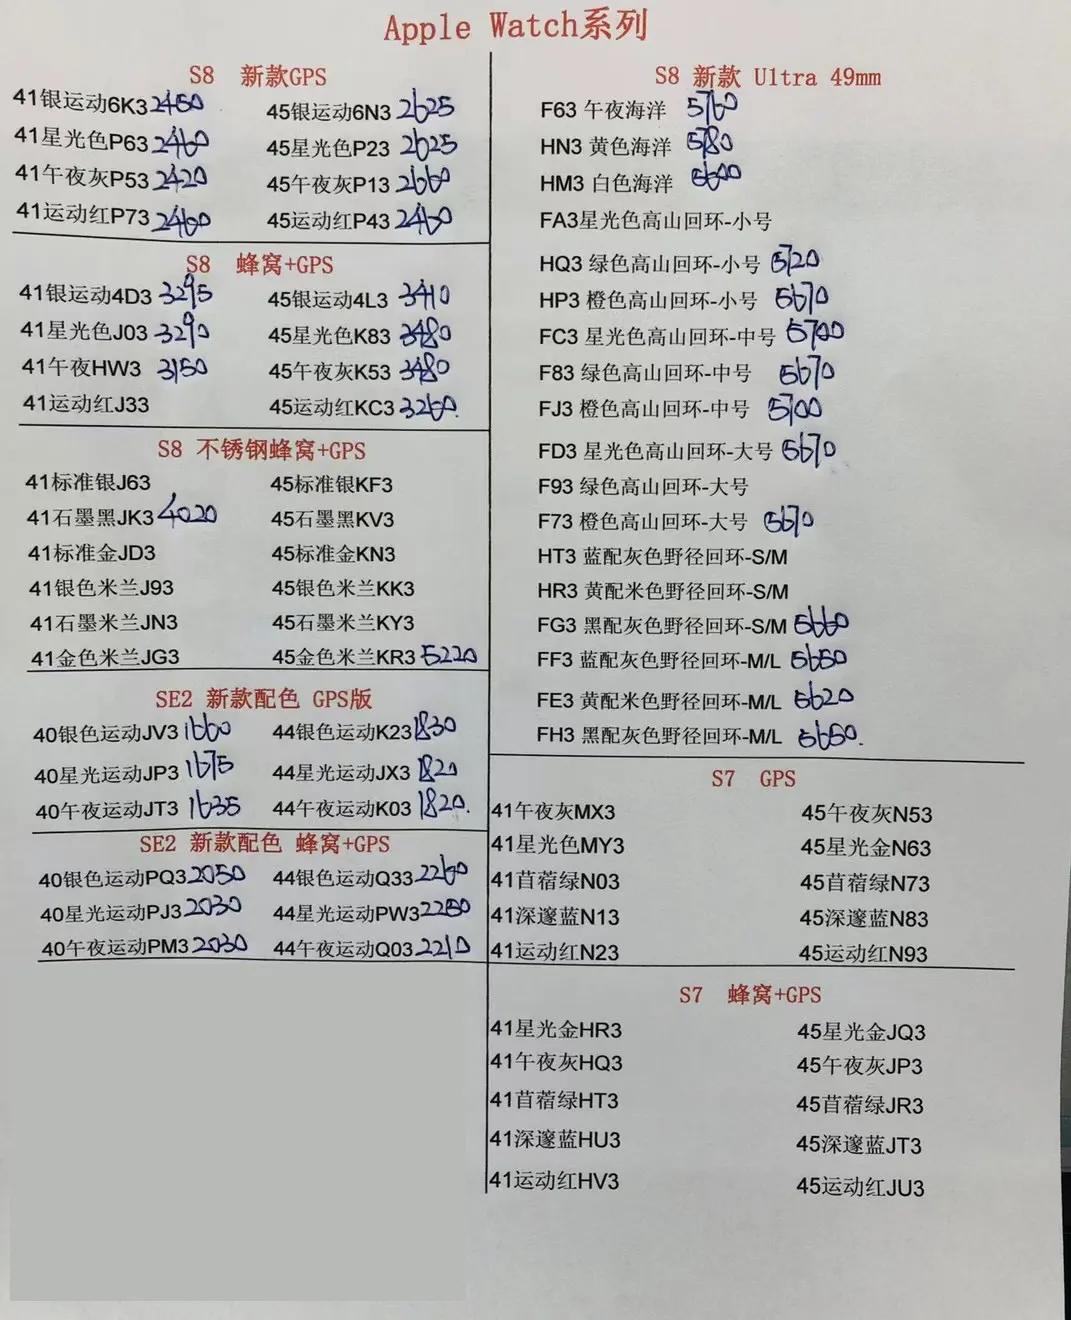 Apple Watch系列
S8 新款GPS
41银运动6K3 2450 45银运动6N3 2625
41星光色P63 2460 45星光色P23 2625
41午夜灰P53 2420 45午夜灰P13 2660
41运动红P73 2460 45运动红P43 2460
S8 蜂窝+GPS
41银运动4D3 3295 45银运动4L3 3410
41星光色J03 3290 45星光色K83 3480
41午夜HW3 3150 45午夜灰K53 3480
41运动红J33 45运动红KC3 3260.
S8 不锈钢蜂窝+GPS
41标准银J63 45标准银KF3
41石墨黑JK3 4020 45石墨黑KV3
41标准金JD3 45标准金KN3
41银色米兰J93 45银色米兰KK3
41石墨米兰JN3 45石墨米兰KY3
41金色米兰JG3 45金色米兰KR3 5220
SE2 新款配色 GPS版
40银色运动JV3 1660 44银色运动K23 1830
40星光运动JP3 1675 44星光运动JX3 1820
40午夜运动JT3 1635 44午夜运动K03 1820.
SE2 新款配色 蜂窝+GPS
40银色运动PQ3 2050 44银色运动Q33 2260
40星光运动PJ3 2030 44星光运动PW3 2250
40午夜运动PM3 2030 44午夜运动Q03 2210
S8 新款 Ultra 49mm
F63 午夜海洋 5760
HN3 黄色海洋 5780
HM3 白色海洋 5600
FA3星光色高山回环-小号
HQ3 绿色高山回环-小号 5720
HP3 橙色高山回环-小号 5670
FC3 星光色高山回环-中号 5700
F83 绿色高山回环-中号 5670
FJ3 橙色高山回环-中号 5700
FD3 星光色高山回环-大号 5670
F93 绿色高山回环-大号
F73 橙色高山回环-大号 5670
HT3 蓝配灰色野径回环-S/M
HR3 黄配米色野径回环-S/M
FG3 黑配灰色野径回环-S/M 5660
FF3 蓝配灰色野径回环-M/L 5650
FE3 黄配米色野径回环-M/L 5620
FH3 黑配灰色野径回环-M/L 5650.
S7 GPS
41午夜灰MX3 45午夜灰N53
41星光色MY3 45星光金N63
41苜蓿绿N03 45苜蓿绿N73
41深邃蓝N13 45深邃蓝N83
41运动红N23 45运动红N93
S7 蜂窝+GPS
41星光金HR3 45星光金JQ3
41午夜灰HQ3 45午夜灰JP3
41苜蓿绿HT3 45苜蓿绿JR3
41深邃蓝HU3 45深邃蓝JT3
41运动红HV3 45运动红JU3